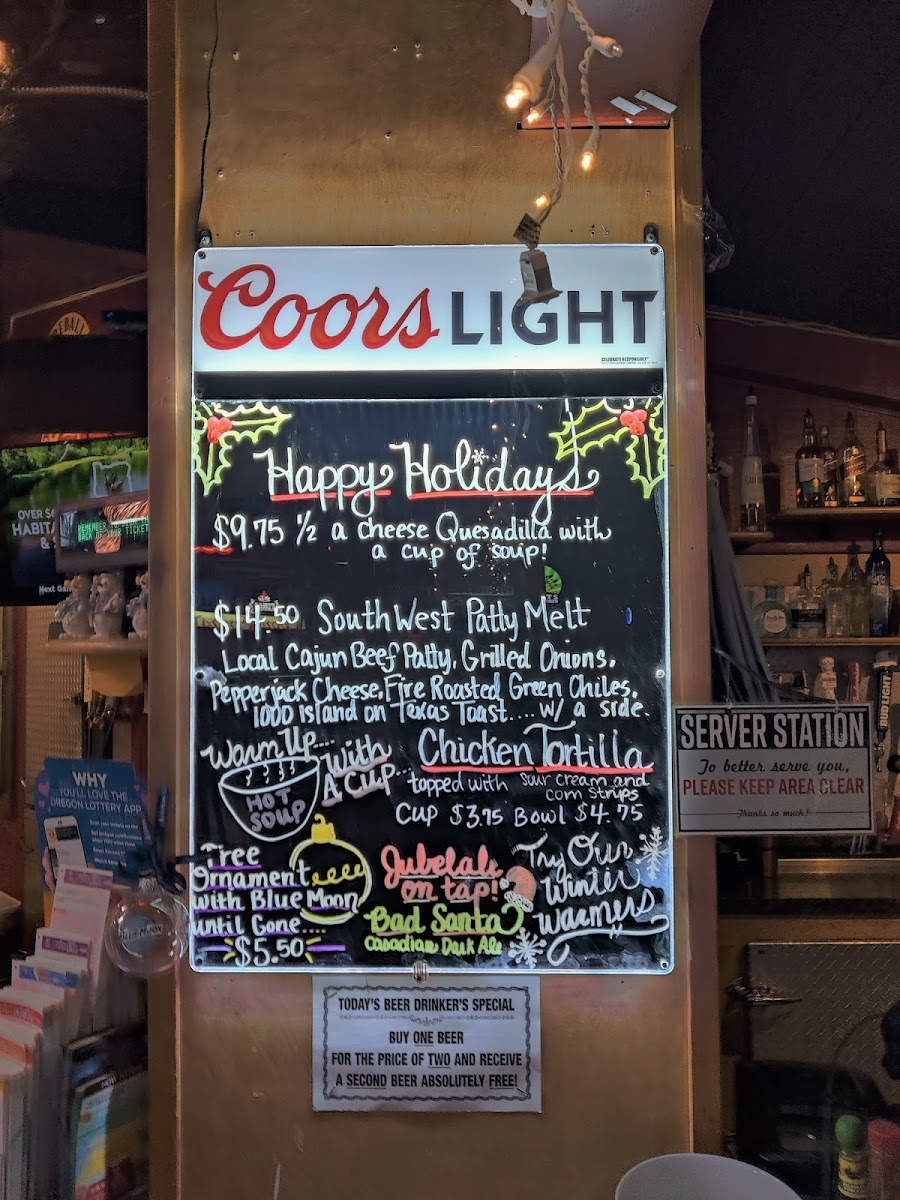 Coors LIGHT
CELEBRATE RESPONSIBLY
Happy Holidays
$9.75 ½ a cheese Quesadilla with
a cup of soup!
$14.50 SouthWest Patty Melt
Local Cajun Beef Patty, Grilled Onions,
Pepperjack Cheese, Fire Roasted Green Chiles,
1000 island on Texas Toast.... w/ a side.
Warm Up....
With
A Cup...
HOT
SOUP
Chicken Tortilla
topped with sour cream and
corn strips
Cup $3.75 Bowl $4.75
Free
Ornament
with Blue Moon
until Gone....
$5.50
Jubelale
on tap!
Bad Santa
Cascadian Dark Ale
Try Our
Winter
Warmers
TODAY'S BEER DRINKER'S SPECIAL
BUY ONE BEER
FOR THE PRICE OF TWO AND RECEIVE
A SECOND BEER ABSOLUTELY FREE!
SERVER STATION
To better serve you,
PLEASE KEEP AREA CLEAR
Thanks so much!
BUD LIGHT
WHY
YOU'LL LOVE THE
OREGON LOTTERY APP
REMEMBER